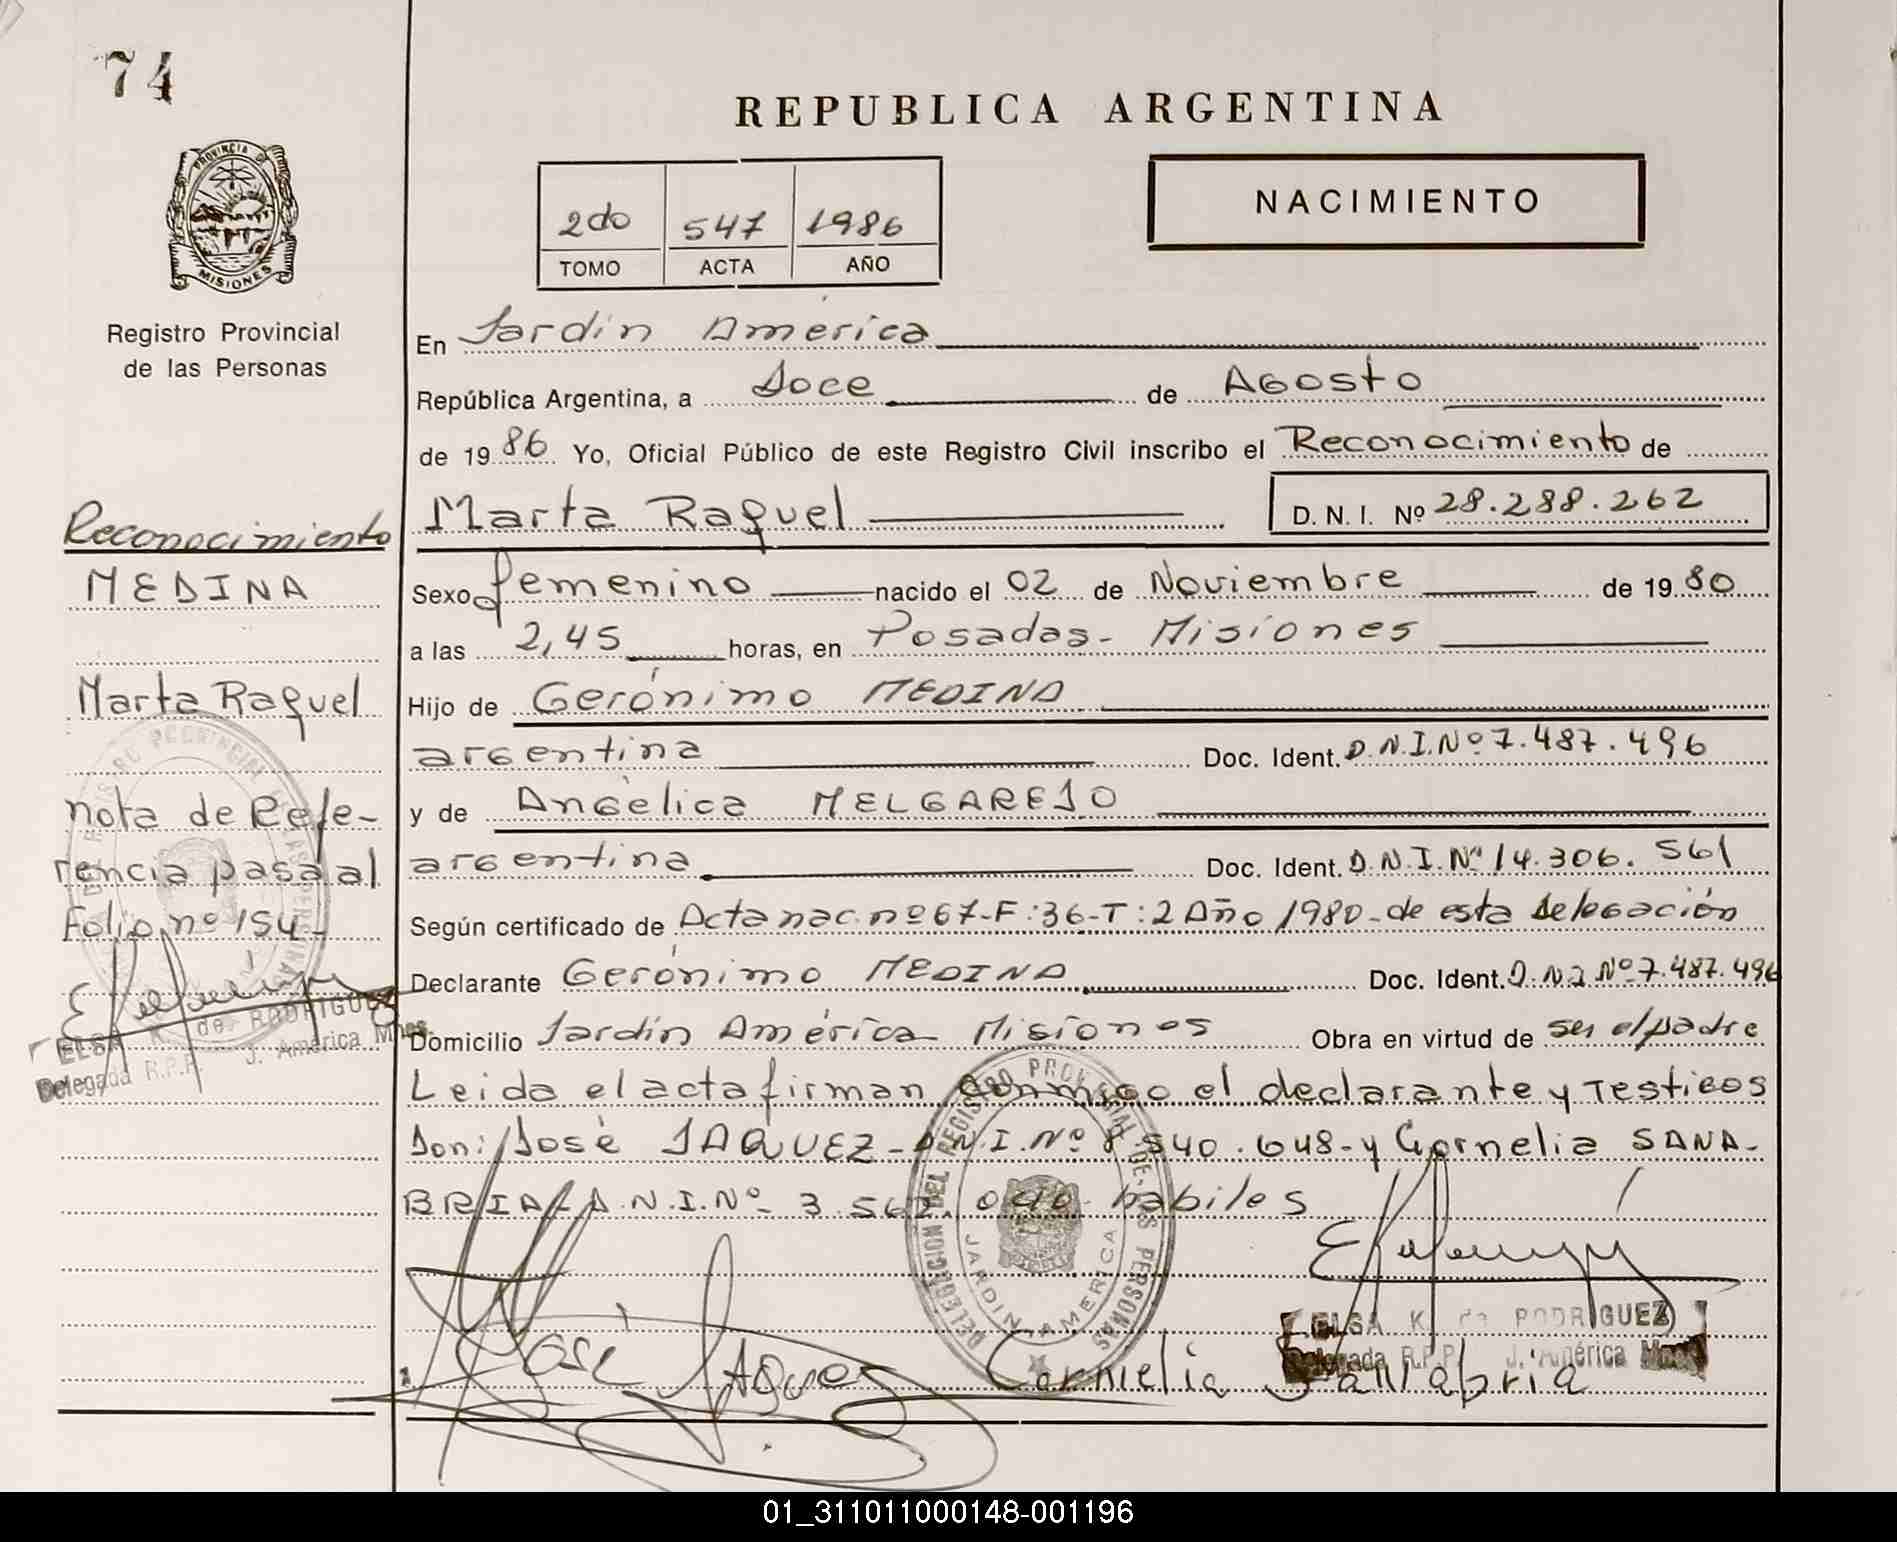 74
REPUBLICA ARGENTINA
PROVINCIA DE
MISIONES
Registro Provincial
de las Personas
2do 547 1986
TOMO ACTA AÑO
NACIMIENTO
En Jardín América
República Argentina, a Doce de Agosto
de 1986 Yo, Oficial Público de este Registro Civil inscribo el Reconocimiento de
Marta Raquel D. N. I. Nº 28.288.262
Sexo femenino nacido el 02 de Noviembre de 1980
a las 2,45 horas, en Posadas - Misiones
Hijo de Gerónimo MEDINA
argentina Doc. Ident. D.N.I. Nº 7.487.496
y de Angélica MELGAREJO
argentina Doc. Ident. D.N.I. Nº 14.306.561
Según certificado de Acta nac. nº 67-F:36-T:2 Año 1980 - de esta delegación
Declarante Gerónimo MEDINA Doc. Ident. D.N.I Nº 7.487.496
Domicilio Jardín América Misiones Obra en virtud de ser el padre
Leida el acta firman conmigo el declarante y Testigos
Son: José JAQUEZ - D.N.I. Nº 8.540.648 - y Cornelia SANA-
BRIA D.N.I. Nº 3.567. habiles
Reconocimiento
MEDINA
Marta Raquel
nota de Refe-
rencia pasa al
Folio nº 154 -
ELSA K. de RODRIGUEZ
Delegada R.P.P. J. América Mnes.
DELEGACION DEL REGISTRO PROVINCIAL DE LAS PERSONAS
JARDIN AMERICA
ELSA K. de RODRIGUEZ
Delegada R.P.P. J. América
José JAQUES
Cornielia Sanabria
01_311011000148-001196